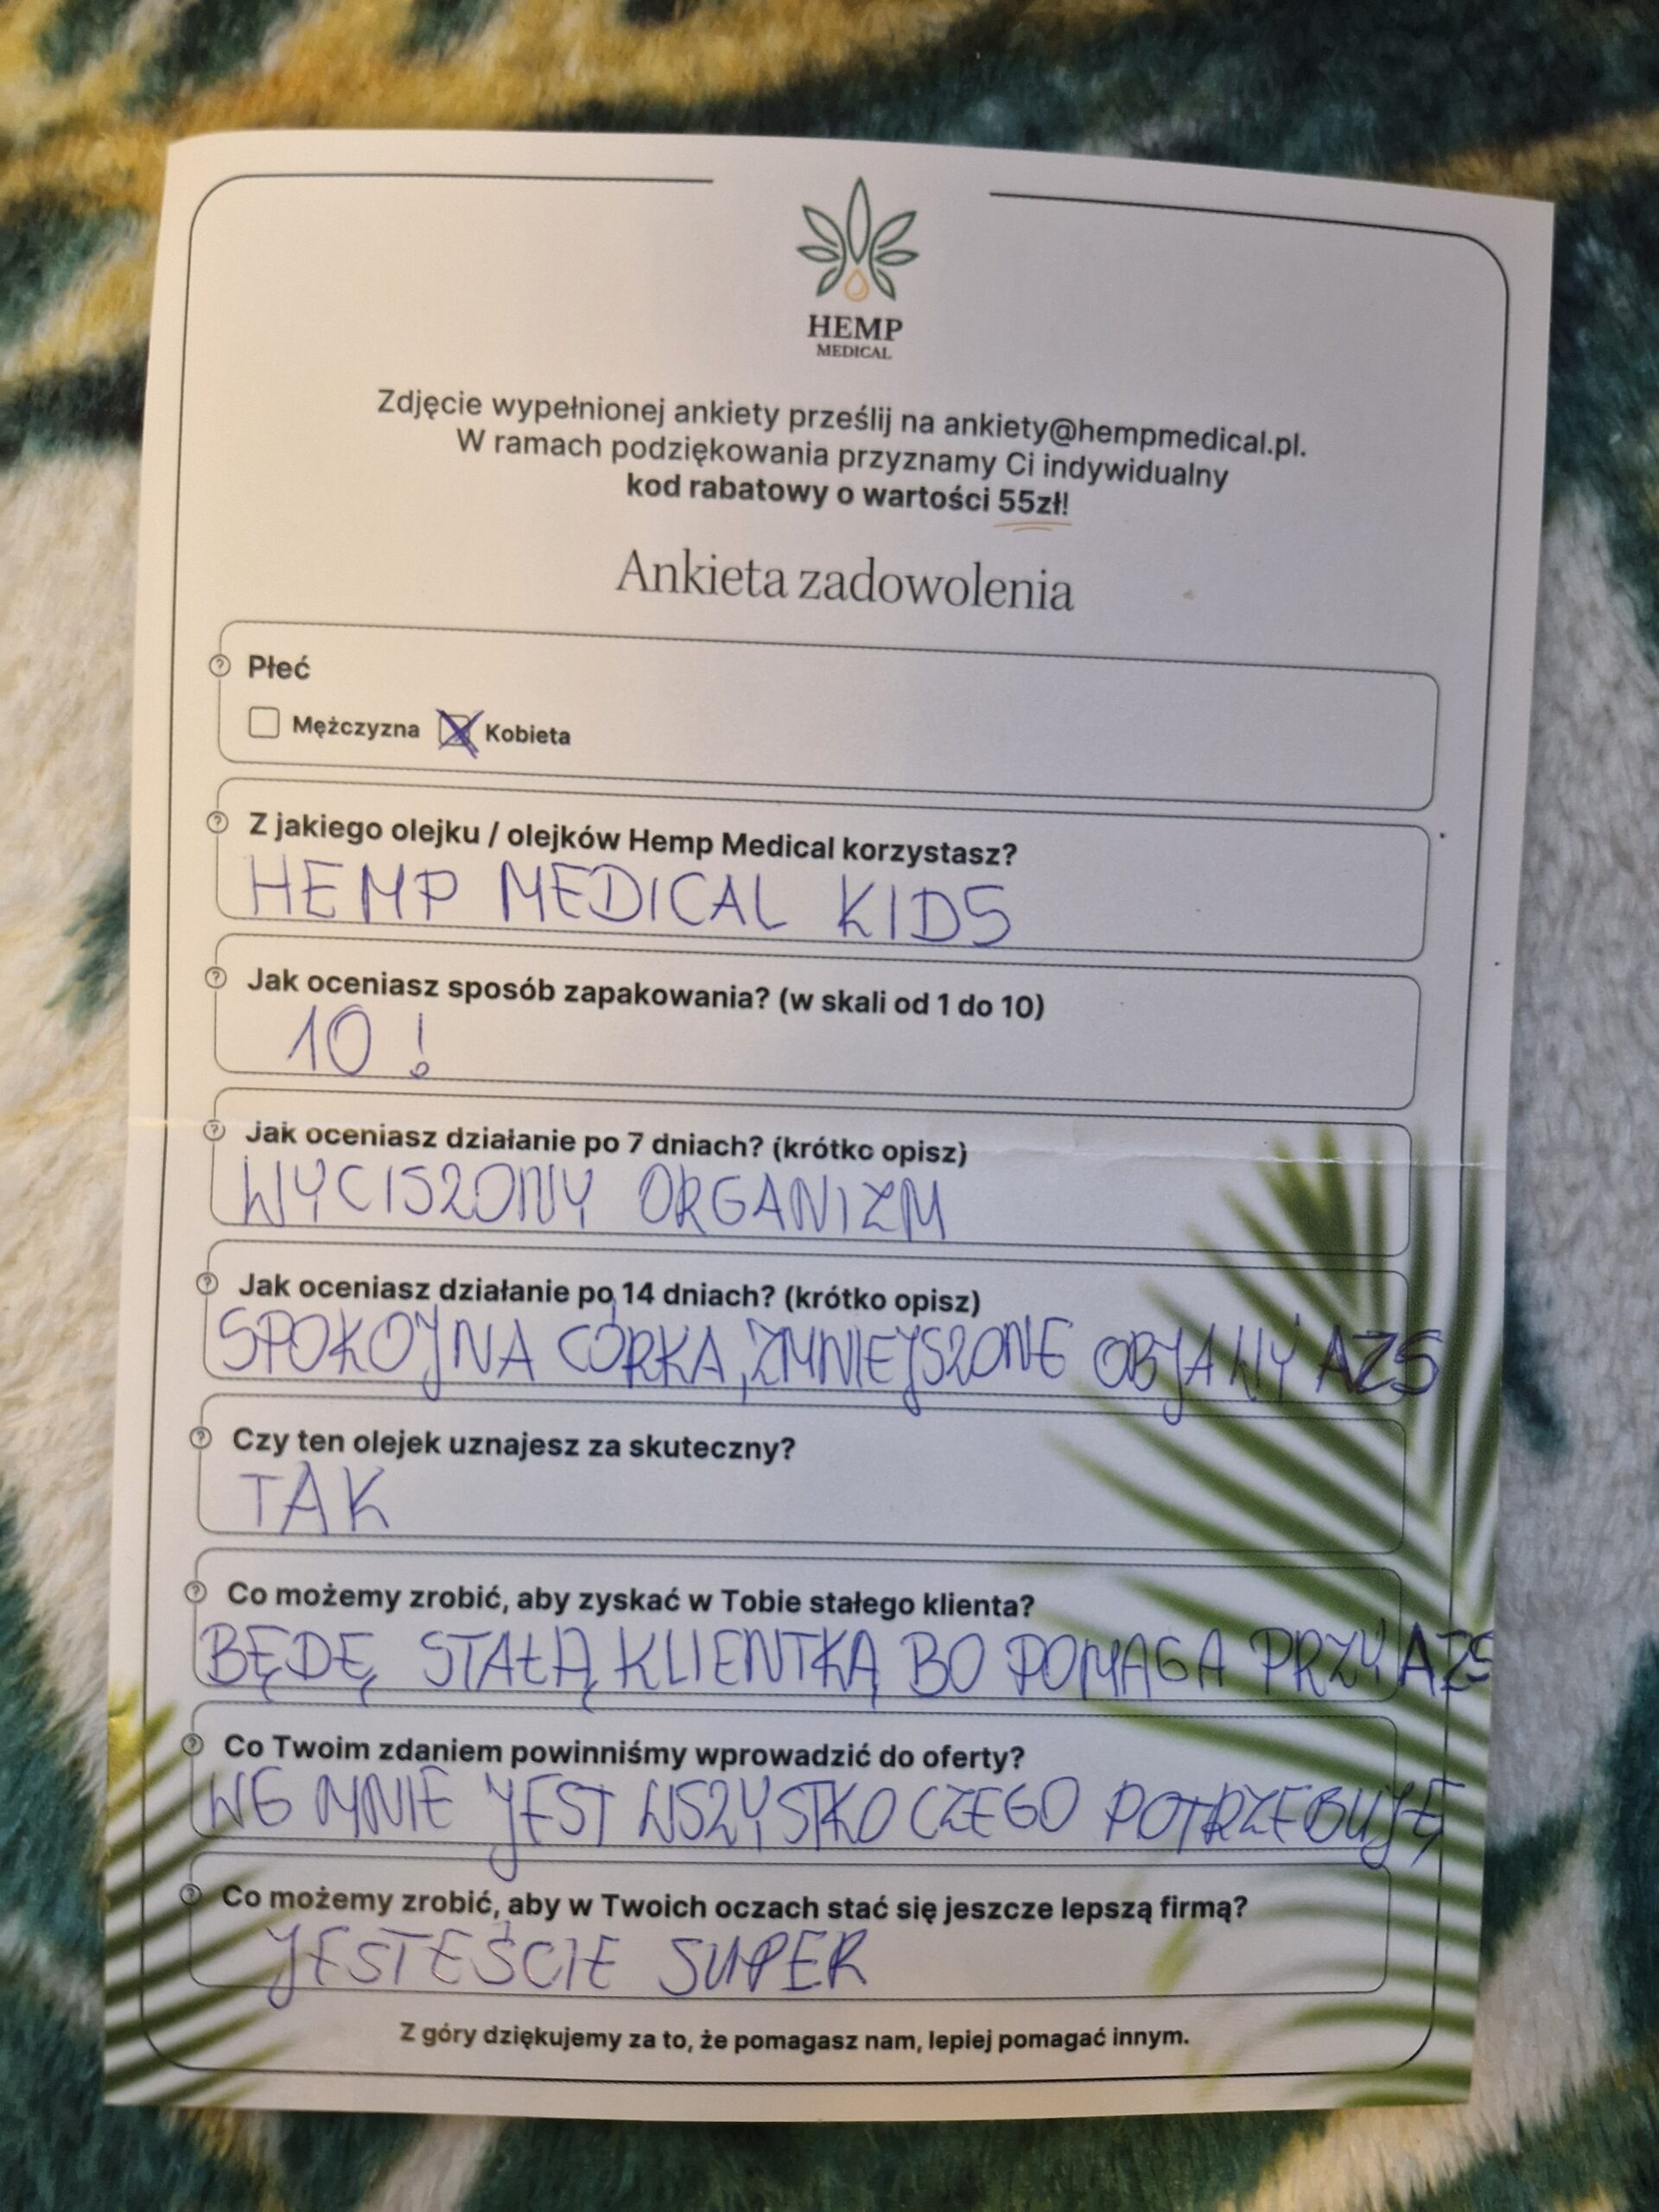 HEMP
MEDICAL
Zdjęcie wypełnionej ankiety prześlij na ankiety@hempmedical.pl.
W ramach podziękowania przyznamy Ci indywidualny
kod rabatowy o wartości 55zł!
Ankieta zadowolenia
Płeć
Mężczyzna Kobieta
Z jakiego olejku / olejków Hemp Medical korzystasz?
HEMP MEDICAL KIDS
Jak oceniasz sposób zapakowania? (w skali od 1 do 10)
10 !
Jak oceniasz działanie po 7 dniach? (krótko opisz)
WYCISZONY ORGANIZM
Jak oceniasz działanie po 14 dniach? (krótko opisz)
SPOKOJNA CÓRKA, ZMNIEJSZONE OBJAWY AZS
Czy ten olejek uznajesz za skuteczny?
TAK
Co możemy zrobić, aby zyskać w Tobie stałego klienta?
BĘDĘ STAŁĄ KLIENTKĄ BO POMAGA PRZY AZS
Co Twoim zdaniem powinniśmy wprowadzić do oferty?
WG MNIE JEST WSZYSTKO CZEGO POTRZEBUJĘ
Co możemy zrobić, aby w Twoich oczach stać się jeszcze lepszą firmą?
JESTEŚCIE SUPER
Z góry dziękujemy za to, że pomagasz nam, lepiej pomagać innym.